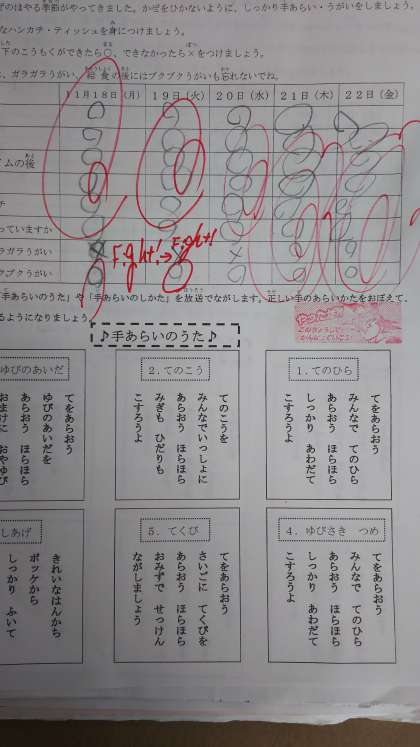 のはやる季節がやってきました。かぜをひかないように、しっかり手あらい・うがいをしましょう。
なハンカチ・ティッシュを身につけましょう。
下のこうもくができたら○、できなかったら×をつけましょう。
ガラガラうがい、給食の後にはブクブクうがいも忘れないでね。
11月18日(月) 19日(火) 20日(水) 21日(木) 22日(金)
イムの後
っていますか
ラガラうがい
Fight! → Fight!
クブクうがい
「手あらいのうた」や「手あらいのしかた」を放送でながします。正しい手のあらいかたをおぼえて、
るようになりましょう。
♪手あらいのうた♪
1.てのひら
てをあらおう
みんなで てのひら
あらおう ほらほら
しっかり あわだて
こすろうよ
2.てのこう
てのこうを
みんなでいっしょに
あらおう ほらほら
みぎも ひだりも
こすろうよ
ゆびのあいだ
てをあらおう
ゆびのあいだを
あらおう ほらほら
おまけに おやゆび
4.ゆびさき つめ
てをあらおう
みんなで てのひら
あらおう ほらほら
しっかり あわだて
こすろうよ
5.てくび
てをあらおう
さいごに てくびを
あらおう ほらほら
おみずで せっけん
ながしましょう
しあげ
きれいなはんかち
ポッケから
しっかり ふいて